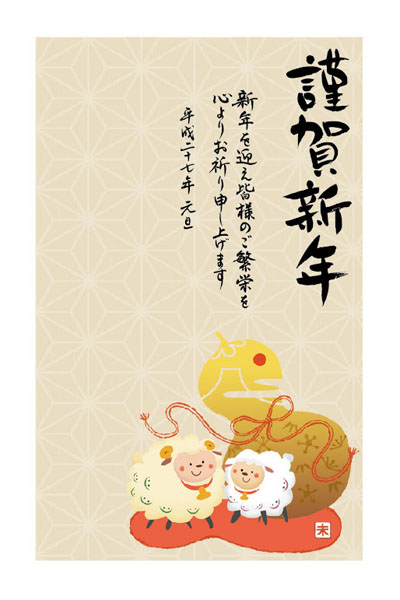 謹賀新年
新年を迎え皆様のご繁栄を
心よりお祈り申し上げます
平成二十七年 元旦
未